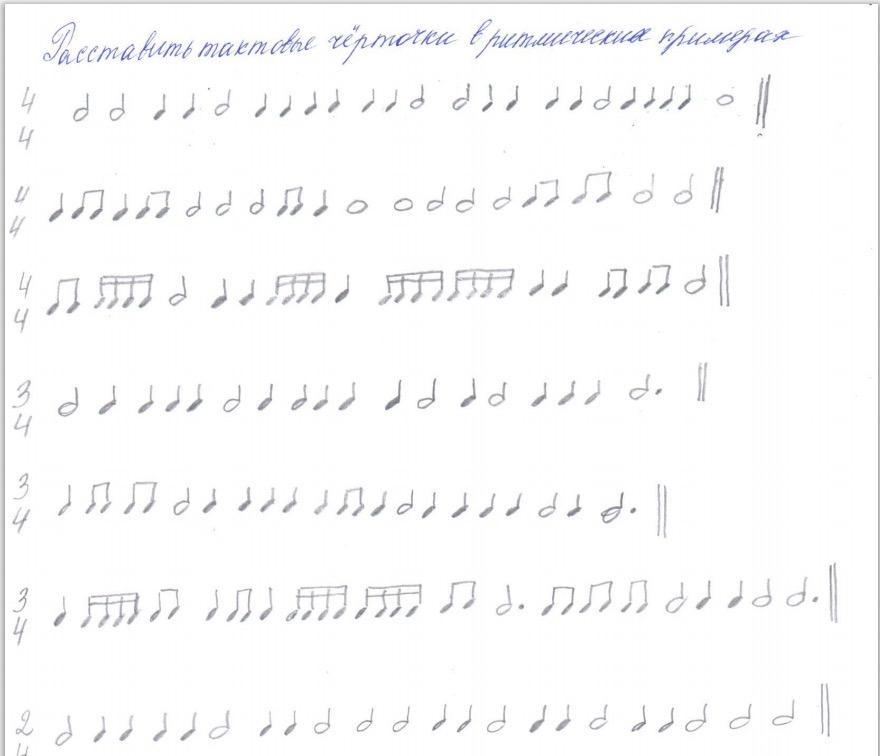 Расставить тактовые чёрточки в ритмических примерах
4
4
4
4
4
4
3
4
3
4
3
4
2
4